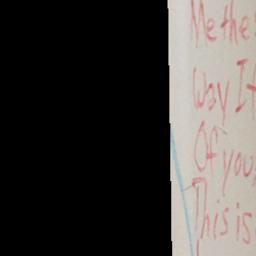 Me the
Way I
Of you
This is